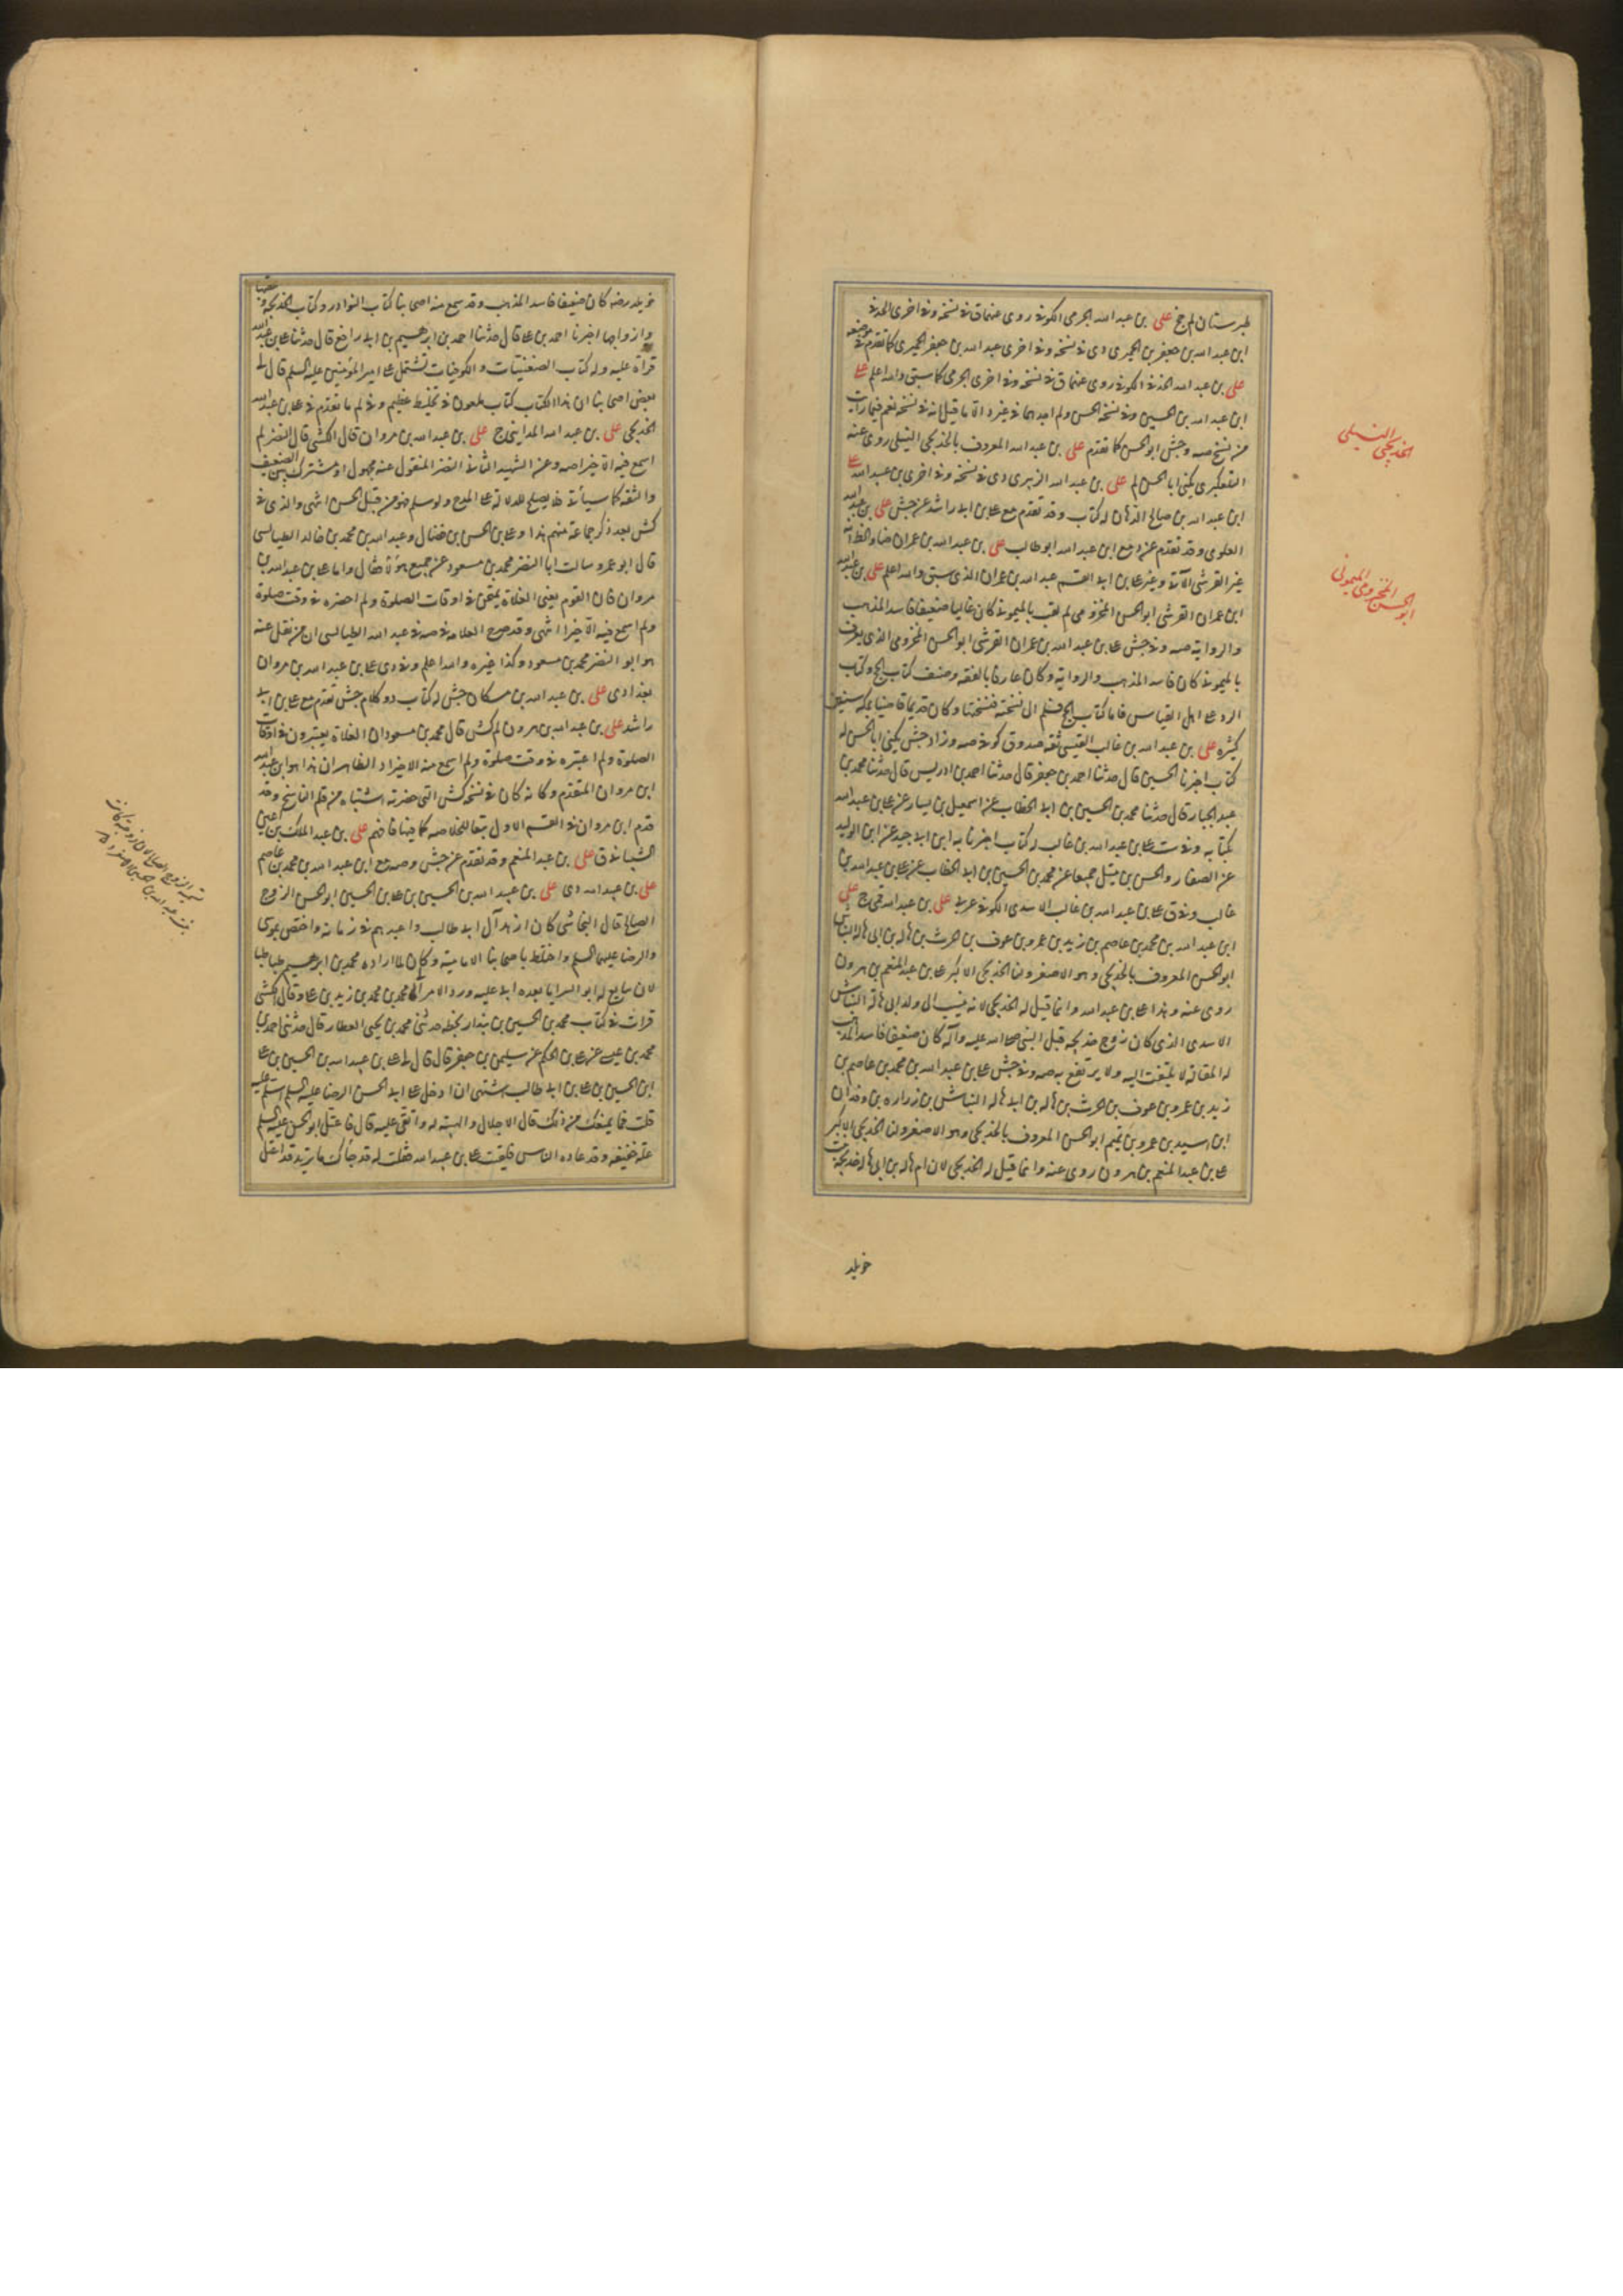 طبرستان لم جخ علی بن عبد الله الجرمی الکوفی روی عنهما ق فی نسخة وفی اخری الحذفی
ابن عبد الله بن جعفر بن الحمیری دی فی نسخة وفی اخری عبد الله بن جعفر الحمیری کما تقدم فی موضعه
علی بن عبد الله الکوفی روی عنهما ق فی نسخة وفی اخری الجرمی کما سبق والله اعلم علی
ابن عبد الله بن الحسین وفی نسخة الحسن ولم اجدهما فی غیر د الا ما قیل انه فی نسخة نعم فیما رایت
من نسخ صه وجش ابو الحسن کما تقدم علی بن عبد الله المعروف بالخدیجی النیلی روی عنه
التلعکبری یکنی ابا الحسن لم علی بن عبد الله الزهری دی فی نسخة وفی اخری بن عبید الله علی
ابن عبد الله بن صالح الدهان له کتاب وقد تقدم مع علی بن ابی راشد عن جش علی بن عبد الله
العلوی وقد تقدم عنه مع ابن عبد الله ابو طالب علی بن عبد الله بن عمران
غیر القرشی الآتی وغیر علی بن ابی القسم عبد الله بن عمران الذی سبق والله اعلم علی بن عبد الله
ابن عمران القرشی ابو الحسن المخزومی لم لقب بالمیمونی کان غالیا ضعیفا فاسد المذهب
والروایة صه وفی جش علی بن عبد الله بن عمران القرشی ابو الحسن المخزومی الذی یعرف
بالمیمونی کان فاسد المذهب والروایة وکان عارفا بالفقه وصنف کتاب الحج وکتاب
الرد علی اهل القیاس فاما کتاب الحج فسلم الی نسخته فنسختها وکان قدیما قاضیا بمکة سنین
کثیرة علی بن عبد الله بن غالب القیسی ثقة صدوق کوفی صه وزاد جش یکنی ابا الحسن له
کتاب اخبرنا الحسین قال حدثنا احمد بن جعفر قال حدثنا احمد بن ادریس قال حدثنا محمد بن
عبد الجبار قال حدثنا محمد بن الحسین بن ابی الخطاب عن اسمعیل بن یسار عن علی بن عبد الله
بکتابه وفی ست علی بن عبد الله بن غالب له کتاب اخبرنا به ابن ابی جید عن ابن الولید
عن الصفار والحسن بن متیل جمیعا عن محمد بن الحسین بن ابی الخطاب عن علی بن عبد الله بن
غالب وفی ق علی بن عبد الله بن غالب الاسدی الکوفی عربی علی بن عبد الله قمی ج علی
ابن عبد الله بن محمد بن عاصم بن زید بن عمرو بن عوف بن الحرث بن هالة بن ابی هالة النباش
ابو الحسن المعروف بالخدیجی وهو الاصغر ولنا الخدیجی الاکبر علی بن عبد المنعم بن هرون
روی عنه وهذا علی بن عبد الله وانما قیل له الخدیجی لانه ینسب الی ولد ابی هالة النباش
الاسدی الذی کان زوج خدیجة قبل النبی صلی الله علیه وآله کان ضعیفا فاسد المذهب
له المقالة لا یلتفت الیه ولا یرتفع به صه وفی جش علی بن عبد الله بن محمد بن عاصم بن
زید بن عمرو بن عوف بن الحرث بن هالة بن ابی هالة النباش بن زرارة بن وقدان
ابن اسید بن عمرو بن تمیم ابو الحسن المعروف بالخدیجی وهو الاصغر ولنا الخدیجی الاکبر
علی بن عبد المنعم بن هرون روی عنه وانما قیل له الخدیجی لان ام هالة بن ابی هالة خدیجة بنت
خویلد
الخدیجی النیلی
ابو الحسن المخزومی المیمونی
خویلد رضه کان ضعیفا فاسد المذهب وقد سمع منه اصحابنا کتاب النوادر وکتاب الخدیجة وعقبها
وازواجها اخبرنا احمد بن علی قال حدثنا احمد بن ابرهیم بن ابی رافع قال حدثنا علی بن عبد الله
قراة علیه وله کتاب الصفینیات والکوفیات تشتمل علی امیر المؤمنین علیه السلم قال لی
بعض اصحابنا ان هذا الکتاب کتاب ملعون فی تخلیط عظیم وفی لم ما تقدم فی علی بن عبد الله
الخدیجی علی بن عبد الله المداینی ج علی بن عبد الله بن مروان قال الکشی قال النضر لم
اسمع فیه الا خیرا صه وعن الشهید الثانی النضر المنقول عنه مجهول او مشترک بین الضعیف
والثقة کما سیأتی فلا یصلح للدلالة علی المدح ولو سلم فهو من قبیل الحسن انتهی والذی فی
کش بعد ذکر جماعة منهم هذا وعلی بن الحسن بن فضال وعبد الله بن محمد بن خالد الطیالسی
قال ابو عمرو سالت ابا النضر محمد بن مسعود عن جمیع هؤلاء فقال واما علی بن عبد الله بن
مروان فان القوم یعنی الغلاة یمتحن فی اوقات الصلوة ولم احضره فی وقت صلوة
ولم اسمع فیه الا خیرا انتهی وقد صرح العلامة فی صه فی عبد الله الطیالسی ان من نقل عنه
هو ابو النضر محمد بن مسعود وکذا غیره والله اعلم وفی دی علی بن عبد الله بن مروان
بغدادی علی بن عبد الله بن مسکان جش له کتاب د وکلام جش تقدم مع علی بن ابی
راشد علی بن عبد الله بن هرون لم کش قال محمد بن مسعود ان الغلاة یعتبرون فی اوقات
الصلوة ولم اعتبره فی وقت صلوة ولم اسمع منه الا خیرا د الظاهر ان هذا هو ابن عبد الله
ابن مروان المتقدم وکانه کان فی نسخة کش التی حضرته اشتباه من قلم الناسخ وقد
قدم ابن مروان فی القسم الاول تبعا للخلاصه کما جینا فافهم علی بن عبد الملک بن اعین
الشیبانی ق علی بن عبد المنعم وقد تقدم عن جش وصه مع ابن عبد الله بن محمد بن عاصم
علی بن عبید الله دی علی بن عبید الله بن الحسین بن علی بن الحسین ابو الحسن الزوج
الصالح قال النجاشی کان ازهد آل ابی طالب واعبدهم فی زمانه واختص بموسی
والرضا علیهما السلم واختلط باصحابنا الامامیة وکان لما اراده محمد بن ابرهیم طباطبا
لان یبایع له ابو السرایا بعده ابی علیه ورد الامر الی محمد بن محمد بن زید بن علی وقال الکشی
قرات فی کتاب محمد بن الحسین بن بندار بخطه حدثنی محمد بن یحیی العطار قال حدثنی احمد بن
محمد بن عیسی عن علی بن الحکم عن سلیمن بن جعفر قال قال لی علی بن عبید الله بن الحسین بن علی
ابن الحسین بن علی بن ابی طالب اشتهی ان ادخل علی ابی الحسن الرضا علیه السلم اسلم علیه
قلت فما یمنعک من ذلک قال الاجلال والهیبة له واتقی علیه قال فاعتل ابو الحسن علیه السلم
علة خفیفة وقد عاده الناس فلقیت علی بن عبید الله فقلت له قد جاءک ما ترید قد اعتل